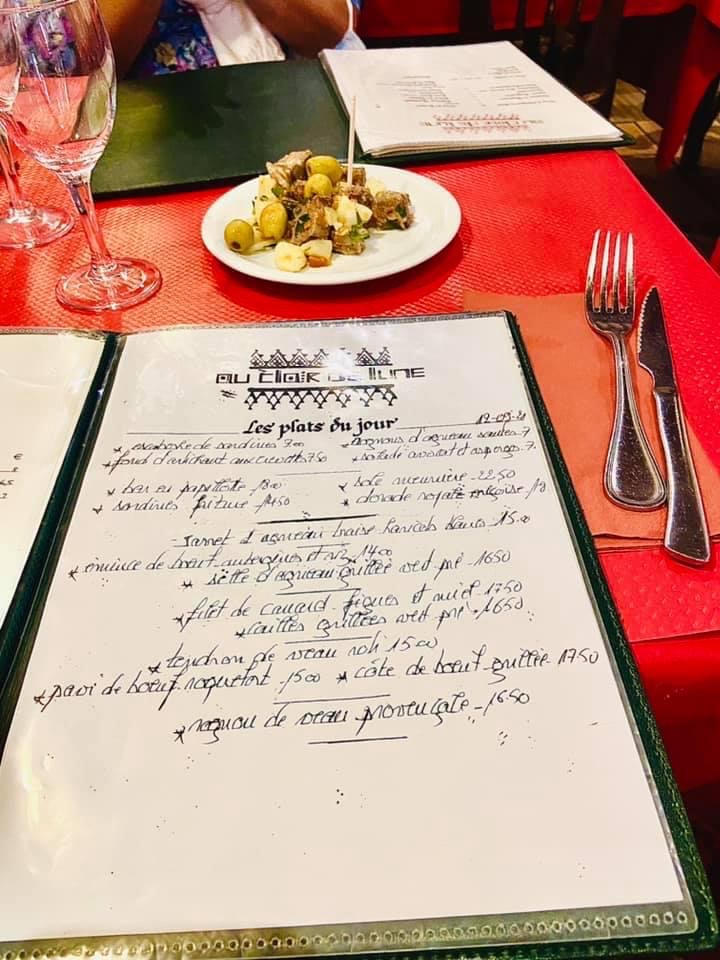 au clair de lune
Les plats du jour
* escabeche de sardines 7.00 * rognons d'agneau sautés 7
* fond d'artichaut aux crevettes 7.50 * salade avocat et asperges 7.
* bar en papillotte 18.00 * sole meunière - 22.50
* sardines friture 14.50 * dorade royale niçoise 18
- Jarret d'agneau braisé haricots blancs 15.00
* émincé de bœuf aubergines et riz 14.00
* selle d'agneau grillée vert pré - 16.50
* filet de canard figues et miel - 17.50
* cailles grillées vert pré - 16.50
* tendron de veau rôti 15.00
* pavé de bœuf roquefort - 15.00 * côte de bœuf grillée 17.50
* rognon de veau provençale - 16.50